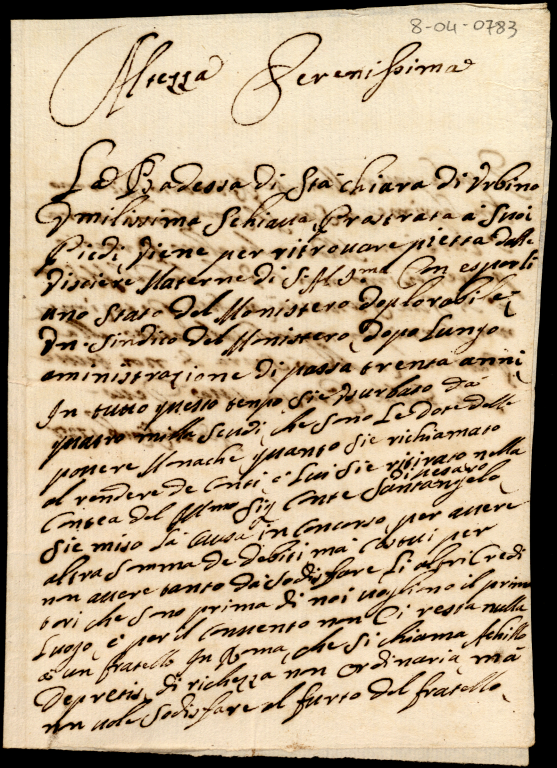 8-04-0783
Altezza Serenissima
La Badessa di Sta Chiara di Urbino
Vmilissima Schiaua Prostrata a Suoi
Piedi Viene per ritrouare pietta dalle
Visciere Materne di S. Al Sma Con esporli
uno Stato del Monistero deplorabile
Vn Sindico del Monistero, dopo Lungo
aministrazione di passa trenta anni
In tutto questo tempo Sie Vsurbato da
quatro milla Scudi, che sono Le Dote delle
pouere Monache quanto Sie richiamato
al rendere de Conti e Lui Sie ritirato nella
Contea del Illmo Sig Conte Santangelo
di pesaro
Sie miso La Causa in Concorso per auere
altra Somma de debiti ma Costui per
non auere tanto da Sodisfare Li altri Credi
tori che sono prima di noi uogliono il primo
Luogo, e per il Conuento non Ci resta nulla
a un fratello In Roma, che Si chiama Achille
Depretis, di richezza non ordinaria, ma
non uole Sodisfare al furto del fratello